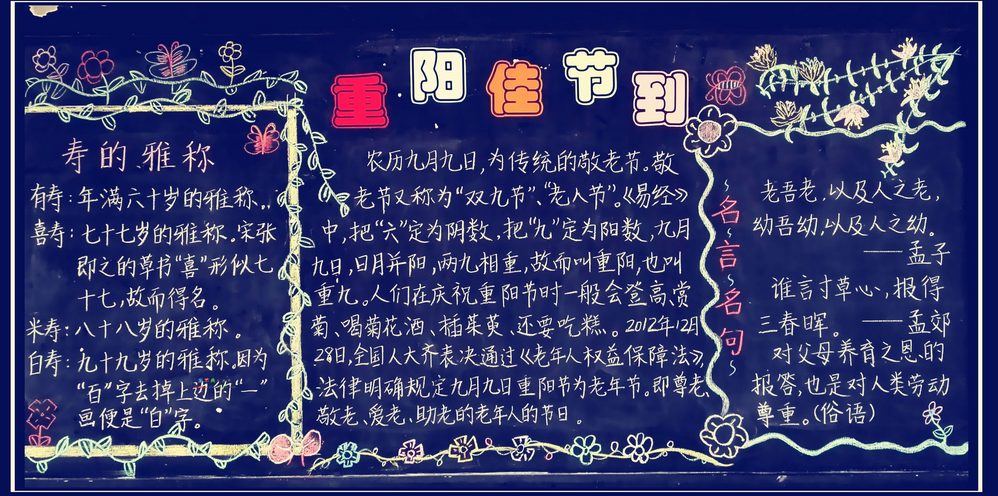 重阳佳节到
寿的雅称
有寿:年满六十岁的雅称.
喜寿:七十七岁的雅称。宋张
即之的草书“喜”形似七
十七,故而得名。
米寿:八十八岁的雅称。
白寿:九十九岁的雅称。因为
“百”字去掉上边的“一”
画便是“白”字。
农历九月九日,为传统的敬老节。敬
老节又称为“双九节”、“老人节”。《易经》
中,把“六”定为阴数,把“九”定为阳数,九月
九日,日月并阳,两九相重,故而叫重阳,也叫
重九。人们在庆祝重阳节时一般会登高、赏
菊、喝菊花酒、插茱萸、还要吃糕。2012年12月
28日,全国人大齐表决通过《老年人权益保障法》
法律明确规定九月九日重阳节为老年节。即尊老、
敬老、爱老、助老的老年人的节日。
名言名句
老吾老,以及人之老,
幼吾幼,以及人之幼。
——孟子
谁言寸草心,报得
三春晖。——孟郊
对父母养育之恩的
报答,也是对人类劳动
尊重。(俗语)